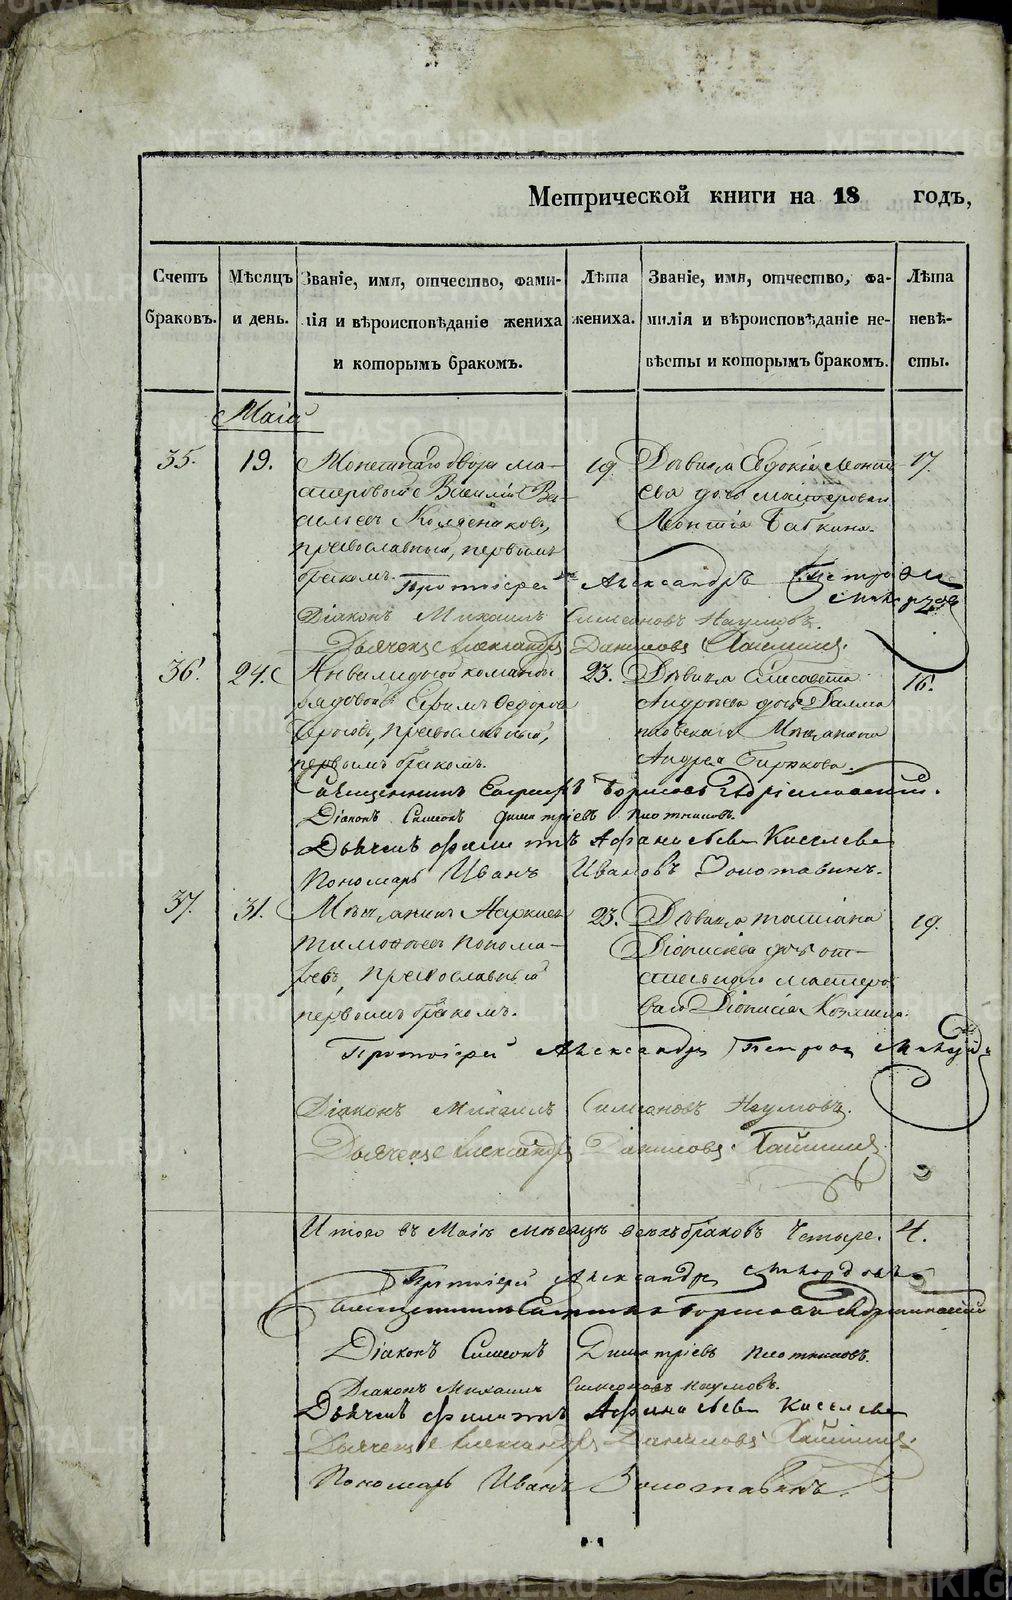 Метрической книги на 18 годъ,
Счетъ браковъ.
Мѣсяцъ и день.
Званіе, имя, отчество, фами-
лія и вѣроисповѣданіе жениха
и которымъ бракомъ.
Лѣта жениха.
Званіе, имя, отчество, фа-
милія и вѣроисповѣданіе не-
вѣсты и которымъ бракомъ.
Лѣта невѣ-
сты.
Маій
35.
19.
Монетнаго двора ма-
стеровый Василій Ва-
сильевъ
православный, первымъ
бракомъ.
19.
Дѣвица Евдокія Леонтi-
ева дочь мастероваго
Леонтія Бабкина.
17.
Протоіерей Александръ Петровъ
Дiаконъ Михаилъ Симеоновъ Наумовъ.
Дьячекъ Александръ Даниловъ
36.
24.
Инвалидной команды
рядовой Ефимъ Ѳедоровъ
православный,
первымъ бракомъ.
23.
Дѣвица Елисавета
Андреева дочь
Мѣщанина
Андрея Бирюкова.
16.
Священникъ Борисовъ
Дiаконъ Симеонъ Димитріевъ Плотниковъ.
Дьячекъ Филиппъ Афанасьевъ Киселевъ
Пономарь Иванъ Ивановъ Золотавинъ.
37.
31.
Мѣщанинъ
Тимофеевъ Понома-
ревъ, православный
первымъ бракомъ.
23.
Дѣвица Татiана
Дiонисiева дочь от-
ставнаго мастеро-
ваго Дiонисiя
19.
Протоіерей Александръ Петровъ
Дiаконъ Михаилъ Симеоновъ Наумовъ.
Дьячекъ Александръ Даниловъ
Итого въ Маiѣ мѣсяцѣ всѣхъ браковъ Четыре. 4.
Протоіерей Александръ
Священникъ Борисовъ
Дiаконъ Симеонъ Димитріевъ Плотниковъ.
Дiаконъ Михаилъ Симеоновъ Наумовъ.
Дьячекъ Филиппъ Афанасьевъ Киселевъ
Дьячекъ Александръ Даниловъ
Пономарь Иванъ Золотавинъ.
METRIKI.GASO-URAL.RU